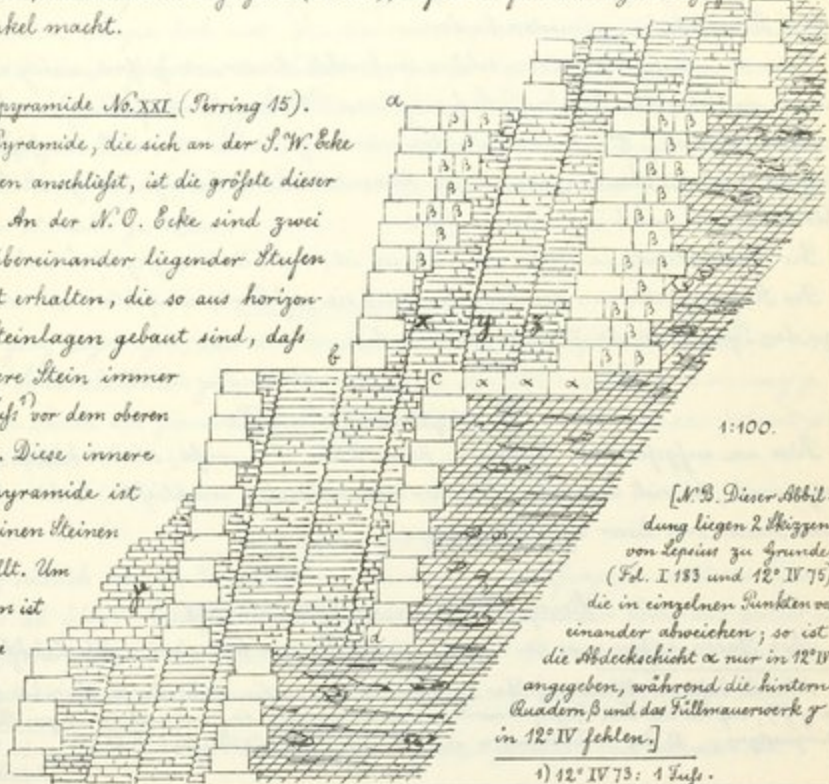 nkel macht.
pyramide No. XXI (Perring 15).
Pyramide, die sich an der S.W. Ecke
en anschließt, ist die größte dieser
An der N.O. Ecke sind zwei
übereinander liegender Stufen
t erhalten, die so aus horizon-
teinlagen gebaut sind, daß
ere Stein immer
uß¹⁾ vor dem oberen
. Diese innere
pyramide ist
einen Steinen
llt. Um
n ist
e
a
β β β
β
β β
β
β β
β
β
β β
β
β β
β
β β
β
β β
β
β β
β
β β
x y z
b
c α α α
d
γ
1:100.
[N.B. Dieser Abbil
dung liegen 2 Skizzen
von Lepsius zu Grunde
(Fol. I 183 und 12° IV 75)
die in einzelnen Punkten vo
einander abweichen; so ist
die Abdeckschicht α nur in 12° IV
angegeben, während die hintern
Quadern β und das Füllmauerwerk γ
in 12° IV fehlen.]
1) 12° IV 73: 1 Fuß.